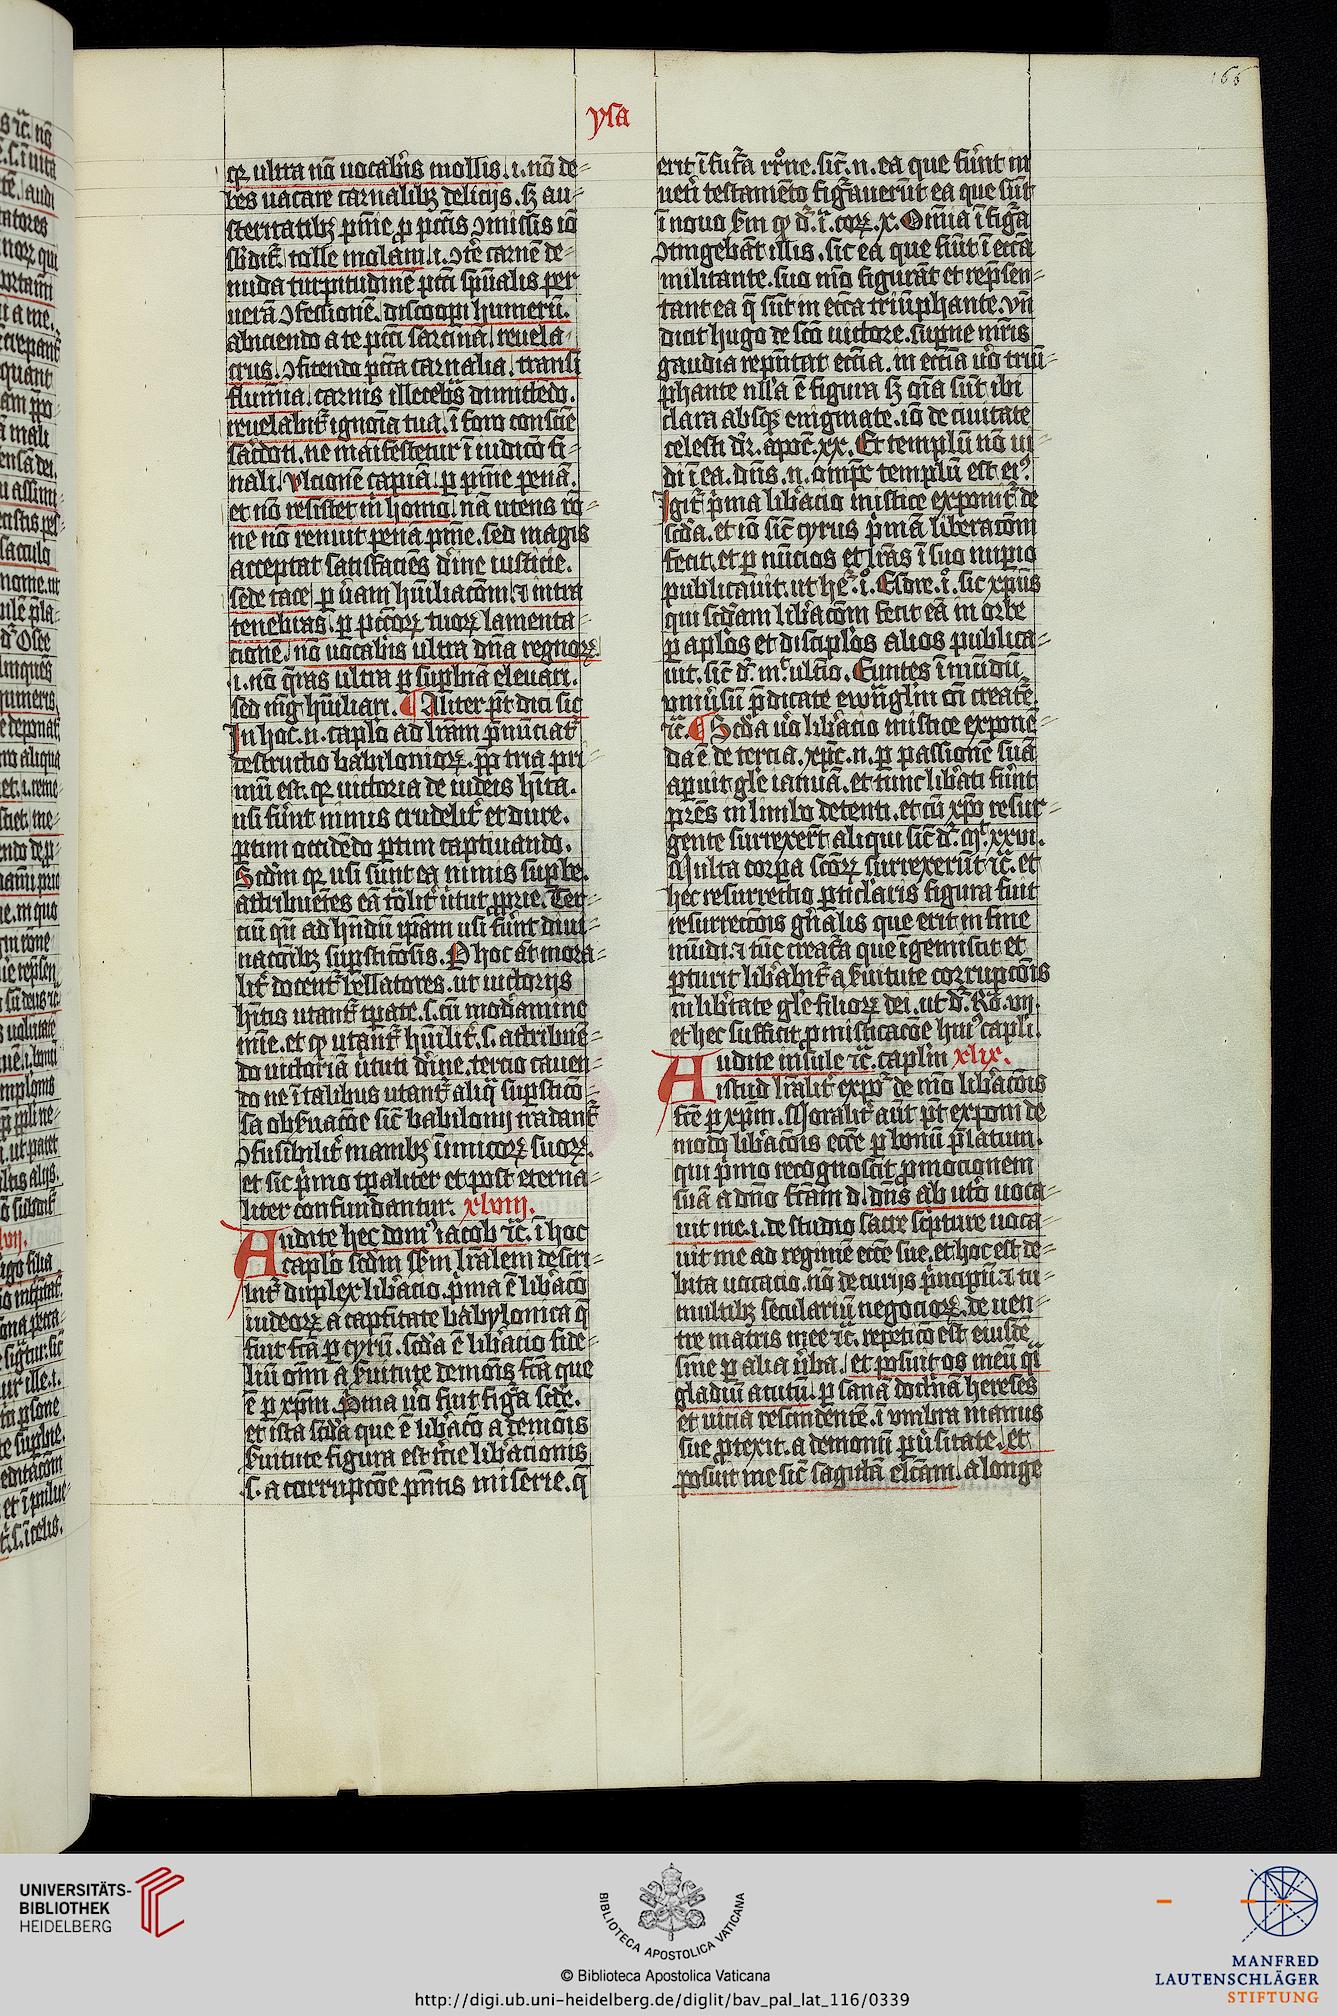 166
ysa
qr ultra nō uocab'is mollis .i. nō de-
bes uacare carnalibꝫ delicijs . sꝫ au-
steritatibꝫ pn̄ie ꝓ pctīs ꝯmissis iō
sb'dit᷑ . tolle molam .i. ꝯt'e carnē de-
nuda turpitudinē pctī spūalis per
uerā ꝯfessionē . discoopi humerū .
abiciendo a te pctī sarcinā . reuela
crus . ꝯfitendo pctā carnalia . transi
flumīa . carnis illecebris dimittēdo .
reuelabit᷑ ignoīa tua . ī foro consciē
sac'doti . ne manifestetur ī iudicō fi-
nali . vlcionē capiā . ꝑ pn̄ie penā .
et nō resistet m̄ homo . nā utens rō-
ne nō renuit penā pn̄ie . sed magis
acceptat satisfaciēs d'ine iusticie .
sede tace . ꝑ u'am hūiliacōm . ⁊ intra
tenebras . ꝑ pctōrꝫ tuorꝫ lamenta-
cionē . nō uocab'is ultra dn̄a regnorꝫ
.i. nō q̄ras ultra ꝑ sup'biā eleuari .
sed mḡ hūiliari . ¶ Aliter pt̄ dici sic
In hoc .n. cap'lo ad lr̄am p̄nūciat᷑
destructio babiloniorꝫ . ꝓp tria pri-
mū est . qr uictoria de iudeis hīta .
usi fūnt nimis crudelit᷑ et dure .
ꝑtim occidēdo ꝑtim captiuando .
Scd̄m qr usi sunt eꝗ nimis sup'be .
attribuētes eā tōlit' u'tut' ꝓprie . Ter-
ciū qn̄ ad hn̄dū ip̄am usi fūnt diui-
nacōibꝫ sup'sticōsis . P hoc āt mora-
lit' docent᷑ bellatores . ut uictorijs
hītis utant᷑ tp̄ate . s. cū mod'amine
iu'ie . et qp utant᷑ hūilit' . s. attribuē-
do uictoriā u'tuti d'ine . tercio cauen-
do ne ī talibus utant᷑ aliq̄ sup'sticō-
sa obs'uacōe sic̄ babilonij tradant᷑
ꝯfusibilit' manibꝫ inimicorꝫ suorꝫ .
et sic p'mo tp̄aliter et post eterna-
liter confundantur . xlviij .
Audite hec dom' iacob ⁊c̄ . ī hoc
cap'lo scd̄m sēm lr̄alem descri-
bit᷑ duplex lib'acio . p'ma ē lib'acō
iudeorꝫ a captiītate babylonica q̄
fuit fctā ꝑ cyrū . scd̄a ē lib'acio fide-
liū om̄i a s'uitute demōis fctā que
ē ꝑ xp̄m . Pma u'o fuit figr̄a scd̄e .
et ista scd̄a que ē lib'acō a demōis
s'uitute figura est t'cie lib'acionis
.s. a corrupcōe p̄ntis miserie . q̄
erit ī futr̄a rr̄one . sic̄ .n. ea que fūnt in
uet'i testamēto figr̄auerūt ea que sūt
ī nouo s'm qp dr̄ . ī . corꝫ . x . Omīa ī figr̄a
ꝯtingebāt illis . sic ea que fiūt ī ecc̄a
militante . suo mō figurāt et rep̄sen-
tant ea q̄ sūt in ecc̄a triūphante . vn̄
dicit hugo de sc̄o uictore . sup'ne mr̄is
gaudia rep̄ntat ecc̄ia . in ecc̄ia u'o triū-
phante nlla ē figura sꝫ oīa sūt ibi
clara absqꝫ enigmate . iō de ciuitate
celesti dr̄ . apoc̄ . xx . Et templū nō ui-
di ī ea . dn̄s .n. om̄ps templū est ei' .
Igit᷑ p'ma lib'acio mistice exponit᷑ de
scd̄a . et iō sic̄ cyrus p'mā liberacōm
fecit . et ꝑ nūcios et lr̄as ī suo impio
publicauit . ut hr̄ . i . Esdre . i . sic xp̄us
qui scd̄am lib'acōm fecit eā in orbe
ꝑ ap'los et discip'los alios publica-
uit . sic̄ dr̄ . mr̄ ult'io . Euntes ī mūdū
uniu'sū p̄dicate ewn̄gl'm oī creatr̄e
⁊c̄ . ¶ Scd̄a u'o lib'acio mistice exponē-
da ē de tercia . xp̄c .n. ꝑ passionē suā
apuit gl'e ianuā . et tunc lib'ati fūnt
prēs in limbo detenti . et cū xp̄o resur-
gente surrexerūt aliqui sic̄ dr̄ . mt̄ . xxvij .
Multa corp̄a sc̄torꝫ surrexerūt ⁊c̄ . et
hec resurrectio ꝑticl'aris figura fuit
resurrectōis gn̄alis que erit in fine
mūdi . ⁊ tūc creatr̄a que īgemiscit et
ꝑturit lib'abit᷑ a s'uitute corrupcōis
in lib'tate gl'e filiorꝫ dei . ut dr̄ . Ro . viij .
et hec sufficit ꝓ misticacōe hui' capl'i .
Audite insule ⁊c̄ . capl'm xlix .
istud lr̄alit' expo' de mō lib'acōis
fctē ꝑ xp̄m . Moralit' aūt pt̄ exponi de
modo lib'acōis ecc̄e ꝑ bonū p̄latum .
qui p'mo recognoscit ꝓmocionem
suā a dn̄o fctām d. dn̄s ab ut'o uoca-
uit me .i. de studio sacre sc'pture uoca-
uit me ad regimē ecc̄e sue . et hoc est de-
bita uocacio . nō de curijs p'ncipū . ⁊ tu-
multibꝫ seculariū negociorꝫ . de uen-
tre matris mee ⁊c̄ . repeticō est eiusdē
sn̄ie ꝑ alia u'ba . et posuit os meū q̄i
gladiū acutū . ꝑ sanā doctr'nā hereses
et uicia rescindentē . ī vmbra manus
sue ꝓtexit . a demonū ꝑu'sitate . et
posuit me sic̄ sagittā elcām . a longe
UNIVERSITÄTS-
BIBLIOTHEK
HEIDELBERG
BIBLIOTECA APOSTOLICA VATICANA
© Biblioteca Apostolica Vaticana
http://digi.ub.uni-heidelberg.de/diglit/bav_pal_lat_116/0339
MANFRED
LAUTENSCHLÄGER
STIFTUNG